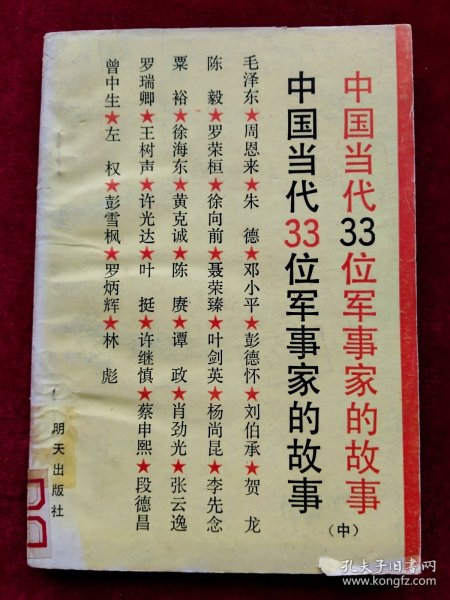 中国当代33位军事家的故事
中国当代33位军事家的故事
(中)
毛泽东★周恩来★朱 德★邓小平★彭德怀★刘伯承★贺 龙
陈 毅★罗荣桓★徐向前★聂荣臻★叶剑英★杨尚昆★李先念
粟 裕★徐海东★黄克诚★陈 赓★谭 政★肖劲光★张云逸
罗瑞卿★王树声★许光达★叶 挺★许继慎★蔡申熙★段德昌
曾中生★左 权★彭雪枫★罗炳辉★林 彪
明天出版社
孔夫子旧书网
www.kongfz.com